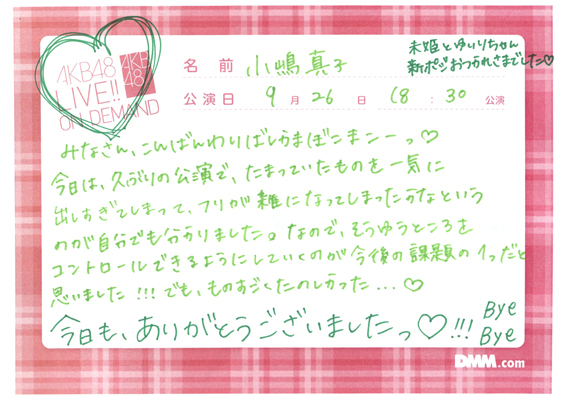 AKB48
LIVE!!
ON DEMAND
AKB
48
名 前 小嶋真子
未姫とゆいりちゃん
新ポジおつかれさまでした♡
公演日 9 月 26 日 18 : 30 公演
みなさん、こんばんわりばしらまぼこまこーっ♡
今日は、久ぶりの公演で、たまっていたものを一気に
出しすぎてしまって、フリが雑になってしまったかなという
のが自分でも分かりました。なので、そうゆうところを
コントロールできるようにしていくのが今後の課題の1つだと
思いました!!!でも、ものすごくたのしかった...♡
今日も、ありがとうございましたっ♡!!!
Bye
Bye
DMM.com